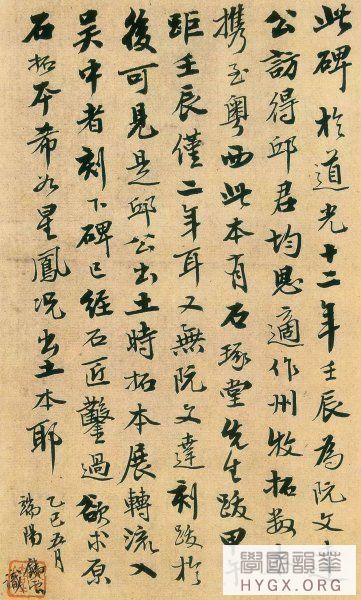 此碑於道光十二年壬辰為阮文
公訪得邱君均恩適作州牧拓數
攜至粵西此本有石琢堂先生跋甲
距壬辰僅二年耳又無阮文達刻跋於
後可見是邱公出土時拓本展轉流入
吳中者刻下碑已經石匠鑿過欲求原
石拓本希如星鳳況出土本耶
乙巳五月
端陽
識
學國韻華
HYGX.ORG